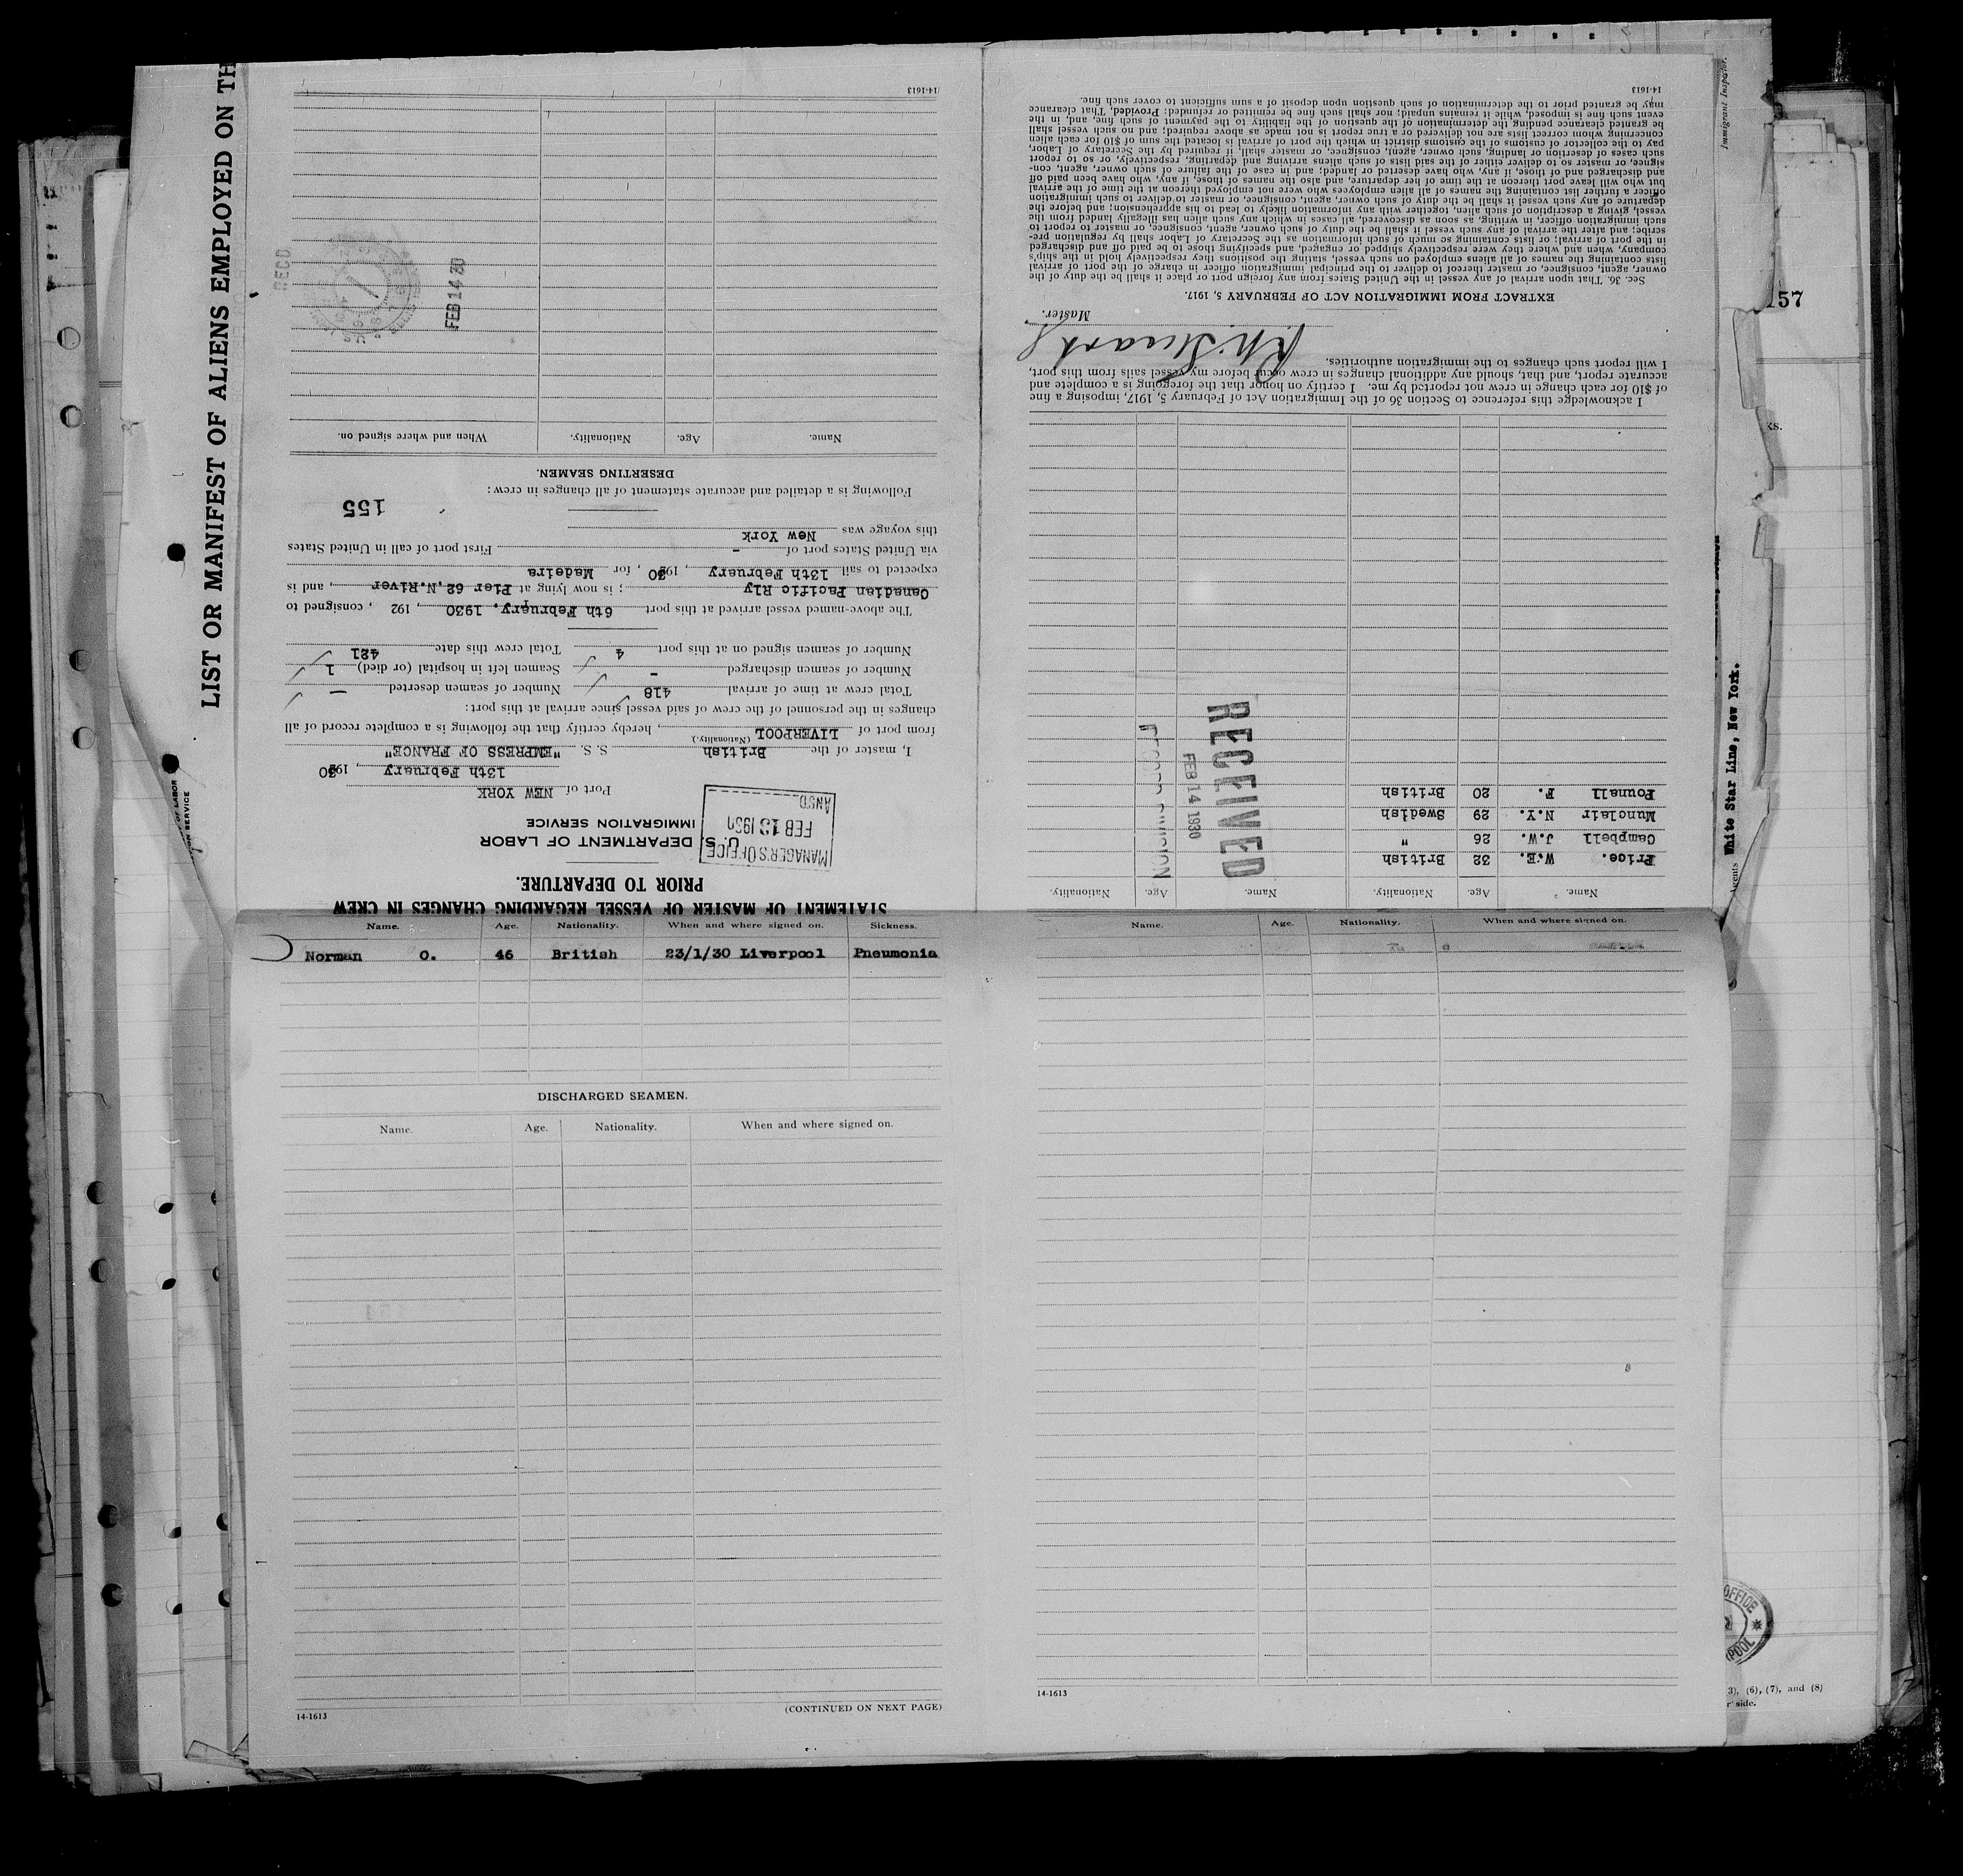 LIST OR MANIFEST OF ALIENS EMPLOYED ON TH
STATEMENT OF MASTER OF VESSEL REGARDING CHANGES IN CREW
PRIOR TO DEPARTURE.
U. S. DEPARTMENT OF LABOR
IMMIGRATION SERVICE
MANAGER'S OFFICE
FEB 13 1930
ANSD.
Port of NEW YORK
13th February, 1930
I, master of the British S. S. "EMPRESS OF FRANCE"
(Nationality.)
from port of LIVERPOOL, hereby certify that the following is a complete record of all
changes in the personnel of the crew of said vessel since arrival at this port:
Total crew at time of arrival 418 Number of seamen deserted —
Number of seamen discharged - Seamen left in hospital (or died) 1
Number of seamen signed on at this port 4 Total crew this date 421
The above-named vessel arrived at this port 6th February, 1930, 192 , consigned to
Canadian Pacific Rly ; is now lying at Pier 62, N.River, and is
expected to sail 13th February, 1930, for Madeira
via United States port of - First port of call in United States
this voyage was New York
155
Following is a detailed and accurate statement of all changes in crew:
DESERTING SEAMEN.
Name. Age. Nationality. When and where signed on.
FEB 14 30
RECD
14-1613
Name. Age. Nationality. Name. Age. Nationality.
Price. W.E. 32 British
Campbell J.W. 26 "
Munclair N.Y. 29 Swedish
Pounall F. 20 British
RECEIVED
FEB 14 1930
RECORD DIVISION
I acknowledge this reference to Section 36 of the Immigration Act of February 5, 1917, imposing a fine
of $10 for each change in crew not reported by me. I certify on honor that the foregoing is a complete and
accurate report, and that, should any additional changes in crew occur before my vessel sails from this port,
I will report such changes to the immigration authorities.
Master.
EXTRACT FROM IMMIGRATION ACT OF FEBRUARY 5, 1917.
Sec. 36. That upon arrival of any vessel in the United States from any foreign port or place it shall be the duty of the
owner, agent, consignee, or master thereof to deliver to the principal immigration officer in charge of the port of arrival
lists containing the names of all aliens employed on such vessel, stating the positions they respectively hold in the ship's
company, when and where they were respectively shipped or engaged, and specifying those to be paid off and discharged
in the port of arrival; or lists containing so much of such information as the Secretary of Labor shall by regulation pre-
scribe; and after the arrival of any such vessel it shall be the duty of such owner, agent, consignee, or master to report to
such immigration officer, in writing, as soon as discovered, all cases in which any such alien has illegally landed from the
vessel, giving a description of such alien, together with any information likely to lead to his apprehension; and before the
departure of any such vessel it shall be the duty of such owner, agent, consignee, or master to deliver to such immigration
officer a further list containing the names of all alien employees who were not employed thereon at the time of the arrival
but who will leave port thereon at the time of her departure, and also the names of those, if any, who have been paid off
and discharged and of those, if any, who have deserted or landed; and in case of the failure of such owner, agent, con-
signee, or master so to deliver either of the said lists of such aliens arriving and departing, respectively, or so to report
such cases of desertion or landing, such owner, agent, consignee, or master shall, if required by the Secretary of Labor,
pay to the collector of customs of the customs district in which the port of arrival is located the sum of $10 for each alien
concerning whom correct lists are not delivered or a true report is not made as above required; and no such vessel shall
be granted clearance pending the determination of the question of the liability to the payment of such fine, and, in the
event such fine is imposed, while it remains unpaid; nor shall such fine be remitted or refunded: Provided, That clearance
may be granted prior to the determination of such question upon deposit of a sum sufficient to cover such fine.
14-1613
Name. Age. Nationality. When and where signed on. Sickness.
Norman O. 46 British 23/1/30 Liverpool Pneumonia
DISCHARGED SEAMEN.
Name. Age. Nationality. When and where signed on.
14-1613
(CONTINUED ON NEXT PAGE)
Name. Age. Nationality. When and where signed on.
14-1613
Immigrant Inspector.
157
ks.
White Star Line, New York.
Agents
OF LABOR
ON SERVICE
OFFICE
POOL
3), (6), (7), and (8)
r side.